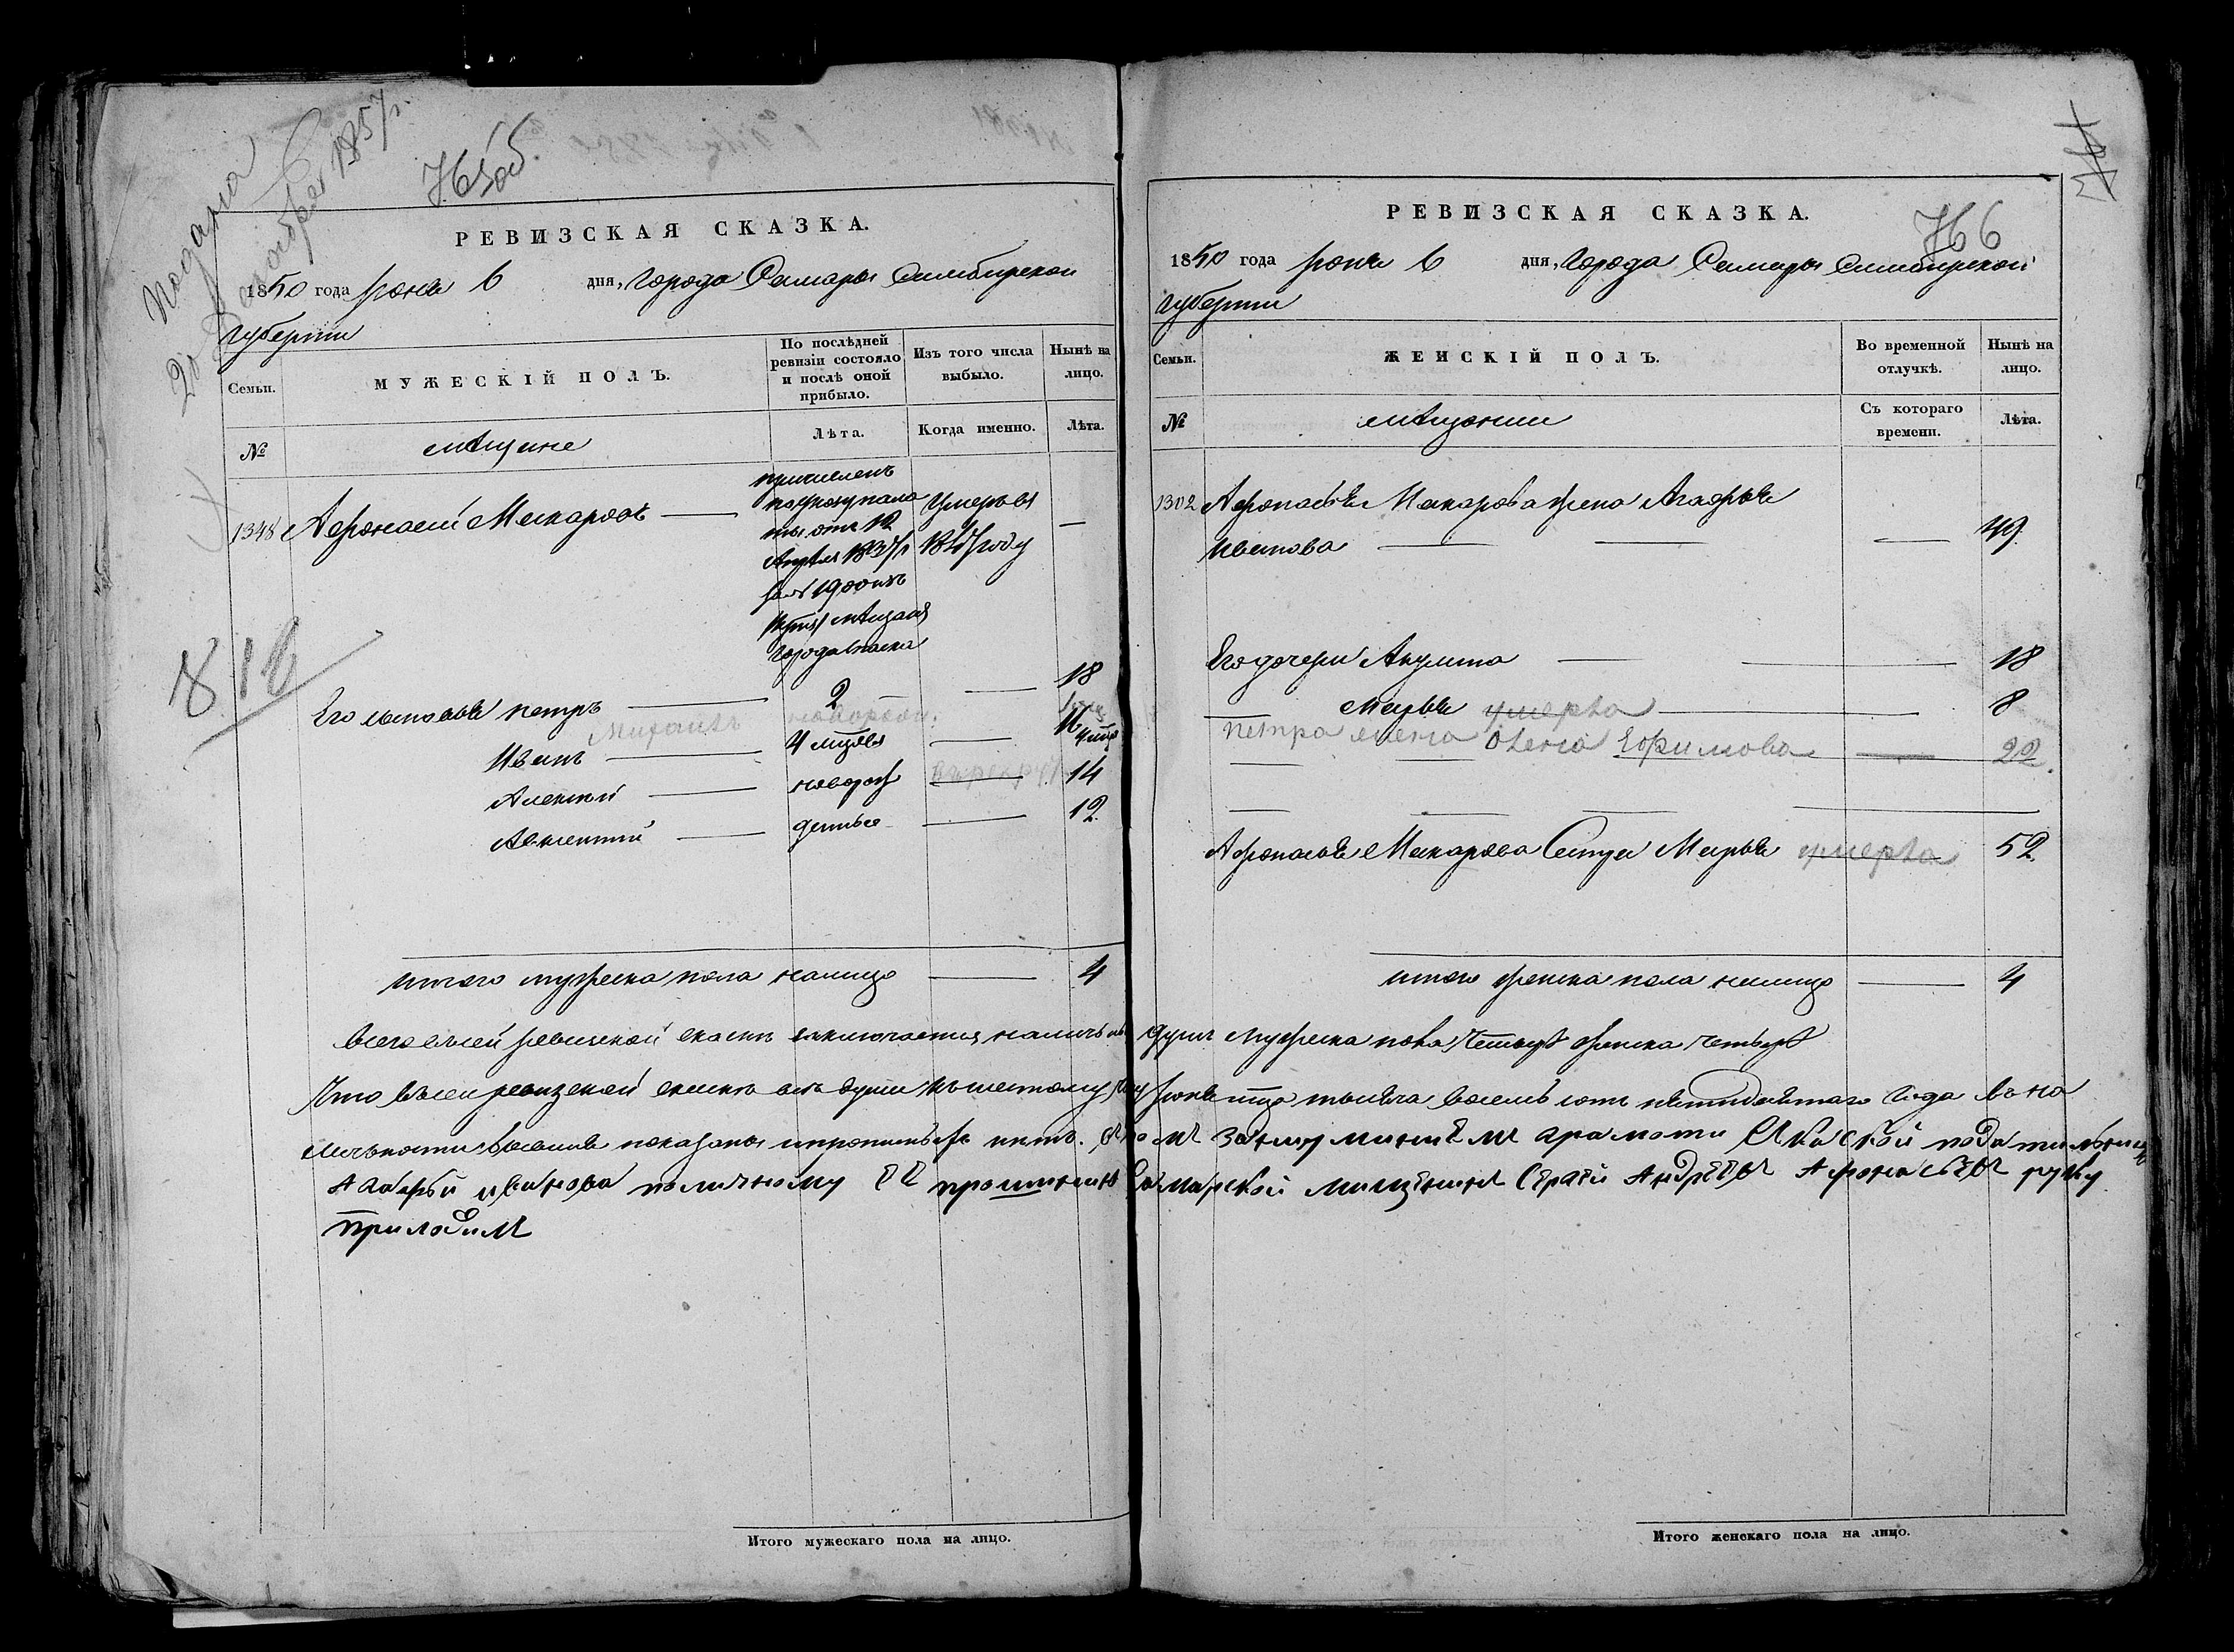 Подана
20 ноября 1857 г.
765 об.
РЕВИЗСКАЯ СКАЗКА.
1850 года июня 6 дня, города Самары Симбирской
губернии
Семьи.
МУЖЕСКІЙ ПОЛЪ.
По послѣдней ревизіи состояло и послѣ оной прибыло.
Изъ того числа выбыло.
Нынѣ на лицо.
№
мещане
Лѣта.
Когда именно.
Лѣта.
1348 Афонасей Макаровъ —
причисленъ
по указу пала
ты отъ 12
Апреля
мещанъ
города
умеръ въ
году
—
818
Его сыновья Петръ — 2 — 18
Михаилъ новорожд.
Иванъ — — 16
Алексей — новорож — 14
Авксентий — — 12
итого мужеска пола налицо — 4
Итого мужескаго пола на лицо.
766
РЕВИЗСКАЯ СКАЗКА.
1850 года июня 6 дня, города Самары Симбирской
губернии
Семьи.
ЖЕНСКІЙ ПОЛЪ.
Во временной отлучкѣ.
Нынѣ на лицо.
№
мещанки
Съ котораго времени.
Лѣта.
1302 Афонасья Макарова жена Агафья
Иванова — — — 49
Его дочери Акулина — — 18
— Марья умерла — 8
Петра жена Елена Ефимова — 22.
Афонасья Макарова Сестра Марья умерла 52
итого женска пола налицо — 4
Всего в сей ревизской сказке заключается наличныхъ душъ мужеска пола четыре женска четыре
Что в сей ревизской сказке все души къ шестому числу июня тысяча восемь сотъ пятидесятаго года въ на
личности состояли показаны и пропиныхъ нетъ. В томъ за неумениемъ грамоти Скаской подательницы
Агафьи Ивановой по личному ее прошению Самарской мещенинъ Сергей Андреевъ Афонасьевъ руку
приложилъ
Итого женскаго пола на лицо.